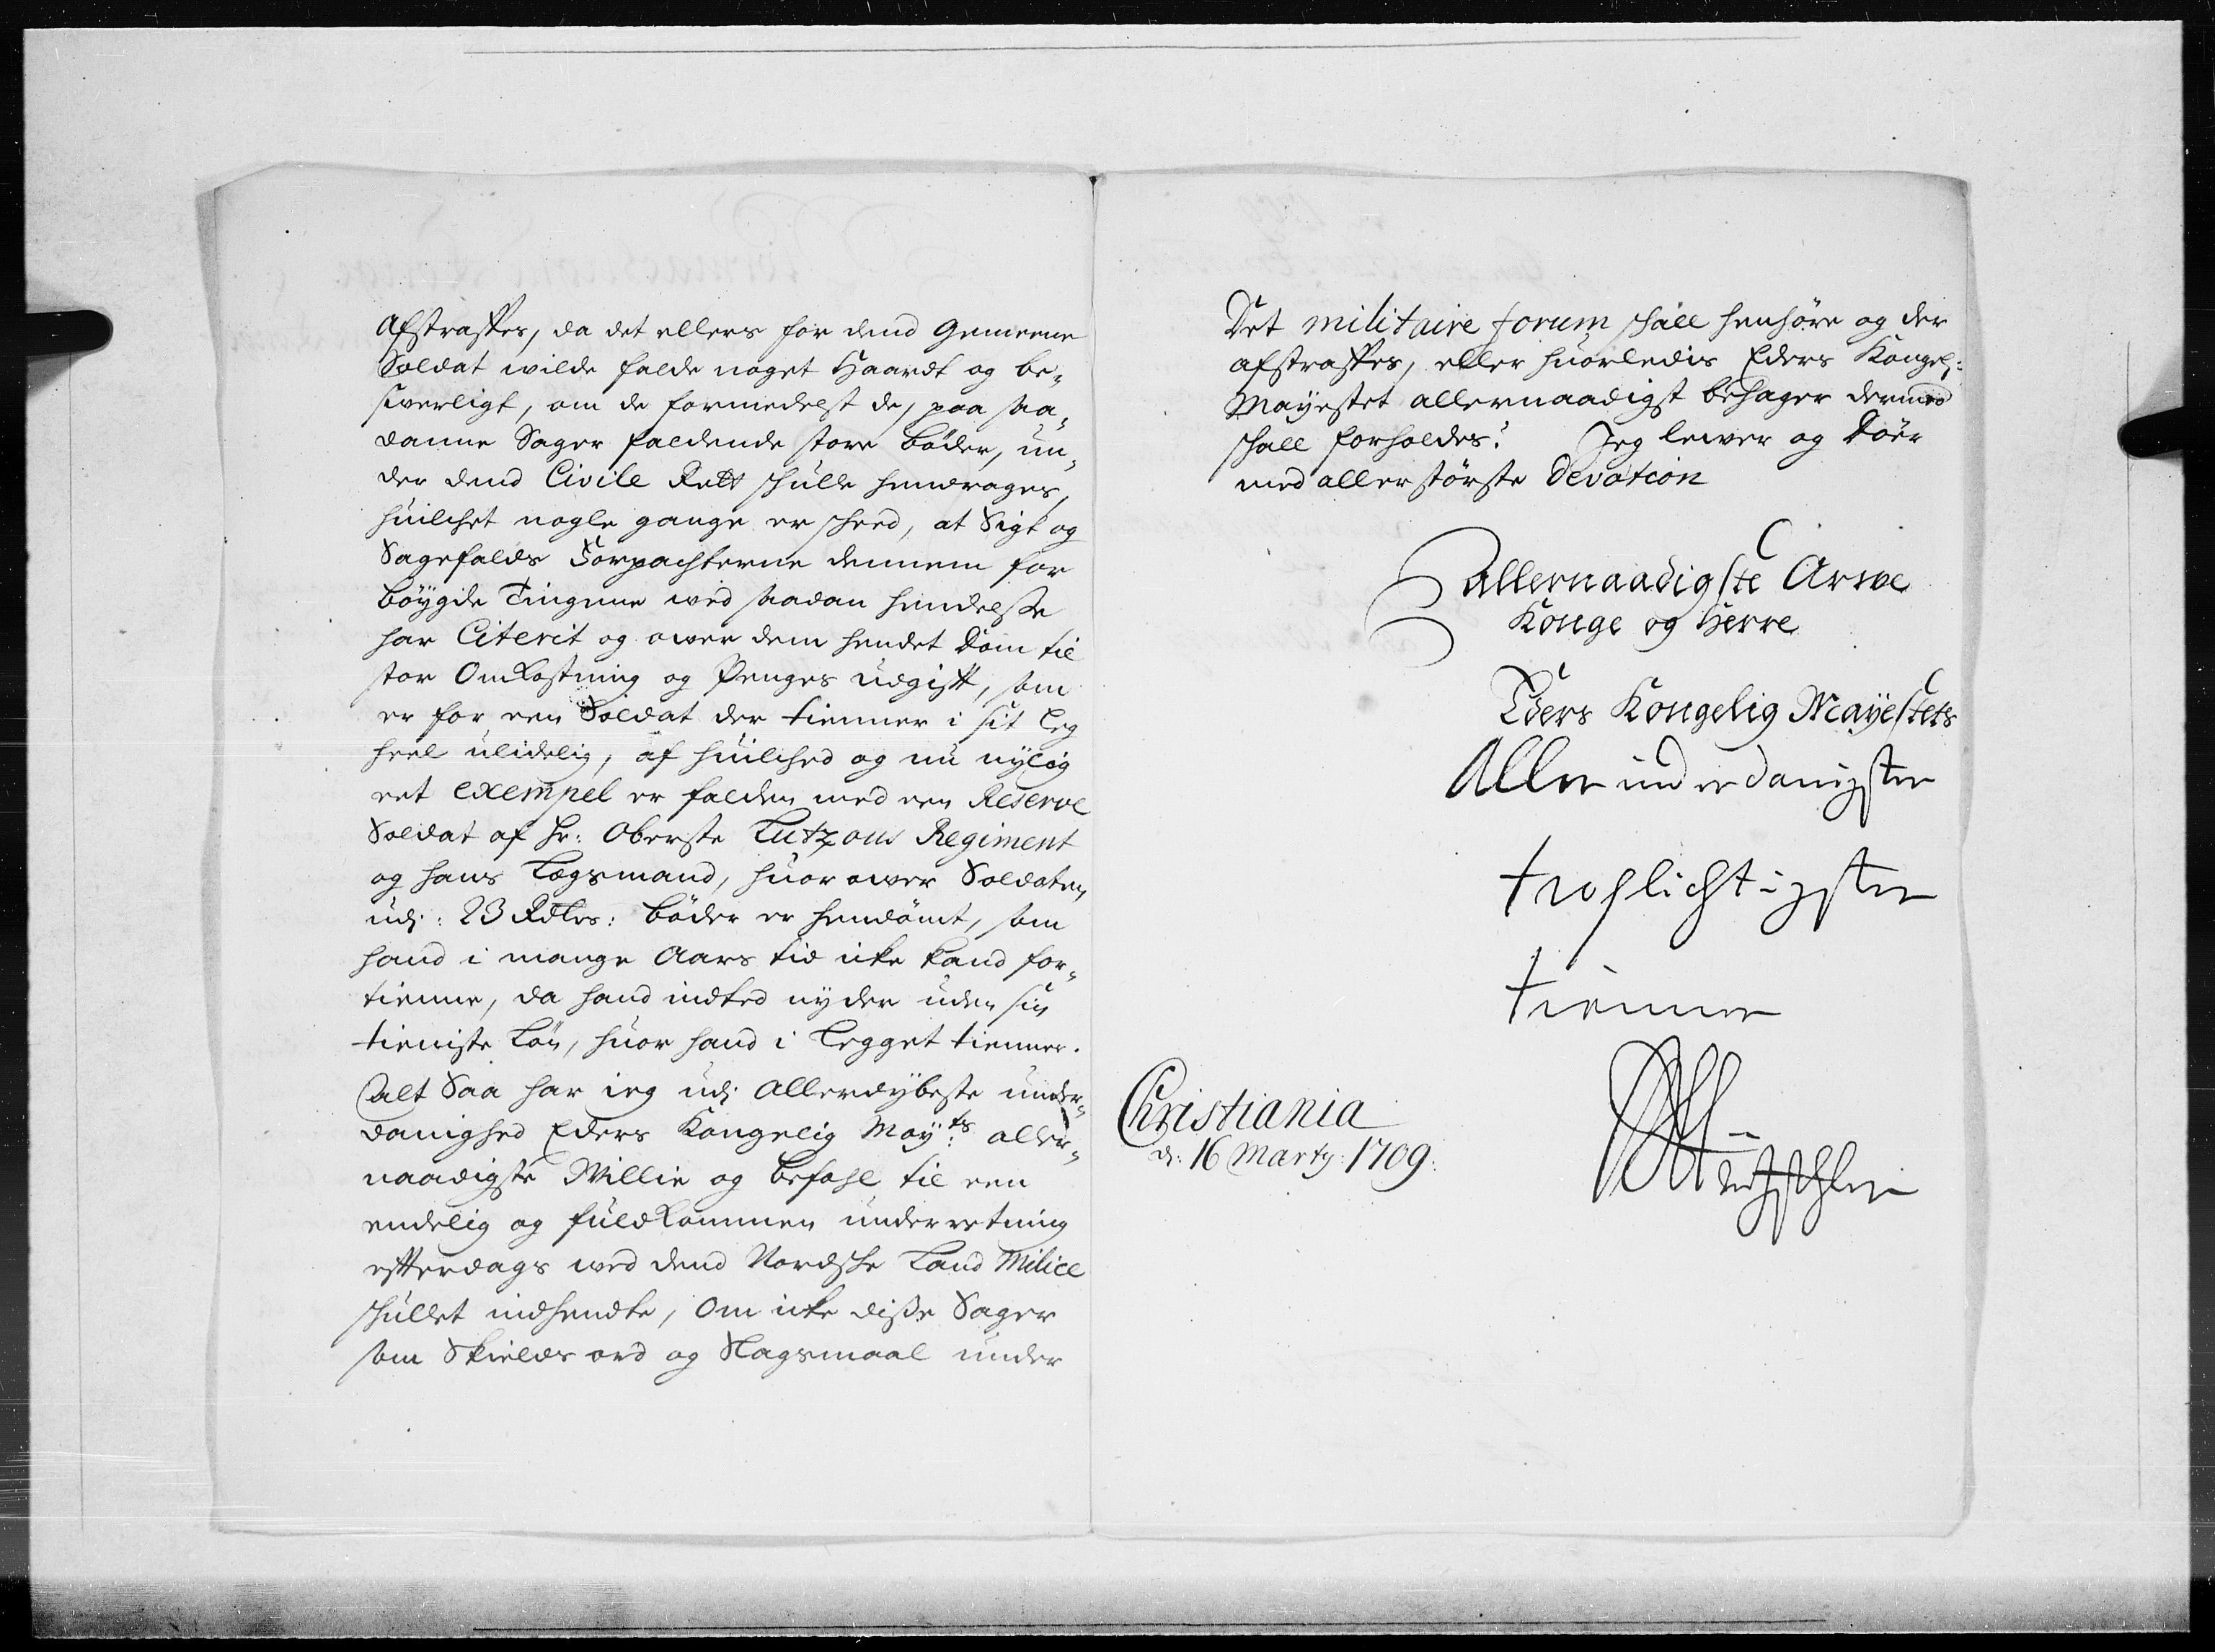 Afstraffes, da det ellers for dend Gemeene
Soldat wilde falde noget Haardt og be-
swerligt, om de formedelst de, paa saa-
danne Sager faldende store bøder, un-
der dend Civile Rett schulle hendrages,
huilchet nogle gange er scheed, at Sigt og
Sagefalds Forpachterne dennem for
bøygde Tingene wed saadan hendelse
har Citerit og ower dem hendet Dom til
stor Omkostning og Penges udgift, som
er for een Soldat der tienner i sit Leg
heel ulidelig, af huilched og nu nylig
eet exempel er falden med een Reserve
Soldat af Hr: Oberste Lutzous Regiment
og hans Lægsmand, huor ower Soldaten
udj: 23 Rdlrs: bøder er hendømt, som
hand i mange Aars tid icke kand for-
tienne, da hand indted nyder uden sin
tieniste Løn, huor hand i Legget tienner.
Alt Saa har ieg udj Allerdybeste under-
danighed Eders Kongelig May:ts aller-
naadigste Willie og befahl til een
endelig og fuldkommen underretning
efterdags wed dend Nordsche Land Milice
schullet indhendte, Om icke disse Sager
som Skields ord og Slagsmaal under
Det militaire forum schall henhøre og der
afstraffes, eller huorledis Eders Kongel:
Mayestet allernaadigst behager dermed
schall forholdes? Jeg lewer og Døer
med allerstørste Devotion
Allernaadigste Arwe
Konge og Herre
Eders Kongelig Mayestets
Aller underdanigster
tropflichtigster
tienner
Christiania
d: 16 Marty: 1709: